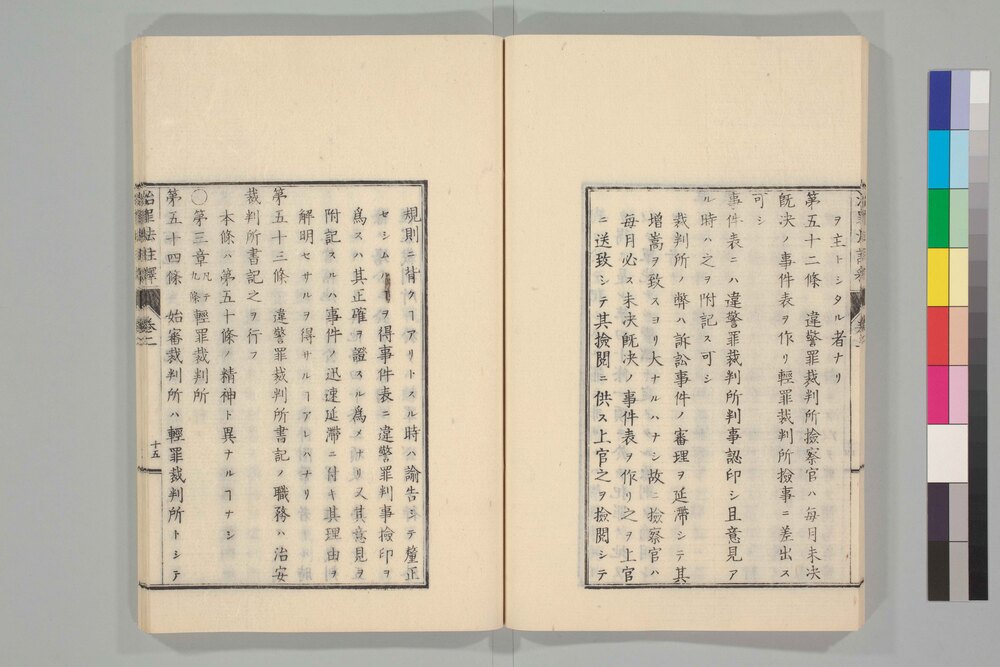 ヲ主トシタル者ナリ
第五十二條　違警罪裁判所撿察官ハ毎月未决
既决ノ事件表ヲ作リ輕罪裁判所撿事ニ差出ス
可シ
事件表ニハ違警罪裁判所判事認印シ且意見ア
ル時ハ之ヲ附記ス可シ
裁判所ノ弊ハ訴訟事件ノ審理ヲ延滯シテ其
增嵩ヲ致スヨリ大ナルハナシ故ニ撿察官ハ
毎月必ス未决既决ノ事件表ヲ作リ之ヲ上官
ニ送致シテ其撿閲ニ供ス上官之ヲ撿閲シテ
規則ニ背クヿアリトスル時ハ諭告シテ釐正
セシムルヿヲ得事件表ニ違警罪判事撿印ヲ
爲スハ其正確ヲ證スル爲メナリ又其意見ヲ
附記スルハ事件ノ迅速延滯ニ付キ其理由ヲ
解明セサルヲ得サルヿアレハナリ
第五十三條　違警罪裁判所書記ノ職務ハ治安
裁判所書記之ヲ行フ
本條ハ第五十條ノ精神ト異ナルヿナシ
〇第三章 凡テ九條 輕罪裁判所
第五十四條　始審裁判所ハ輕罪裁判所トシテ
治罪法註釋　卷二　十五